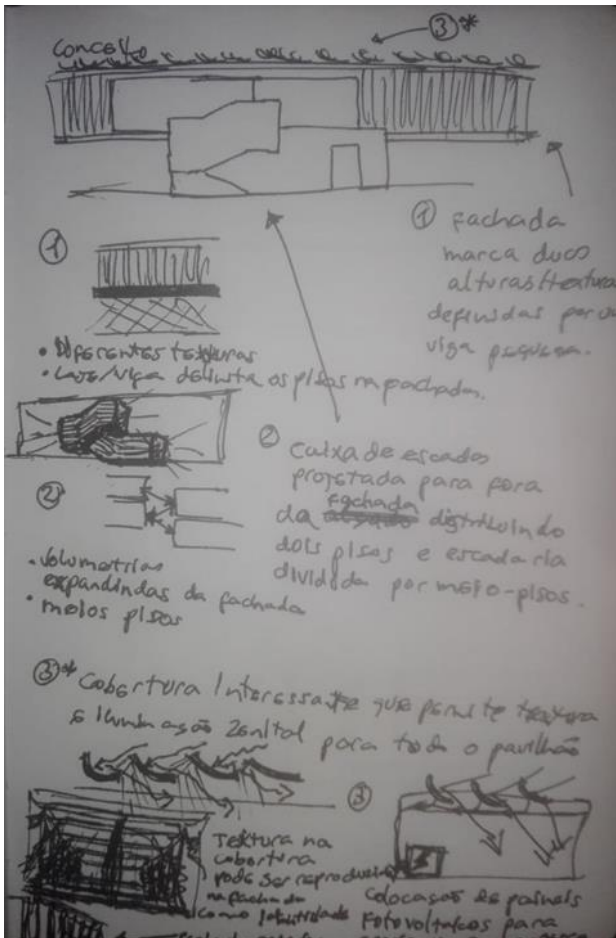 Conceito
③*
① fachada
marca duas
alturas/texturas
definidas por
viga pequena.
①
• Diferentes texturas
• Laje/viga delimita os pisos na fachada.
② Caixa de escadas
projetada para fora
da fachada distribuindo
dois pisos e escadaria
dividida por meio-pisos.
②
• volumetrias
expandindas da fachada
• meios pisos
③* Cobertura Interessante que permite textura
e iluminação Zenital para todo o pavilhão
③
Textura na
cobertura
pode ser reproduzida
na fachada
como
Colocação de paineis
Fotovoltaicos para